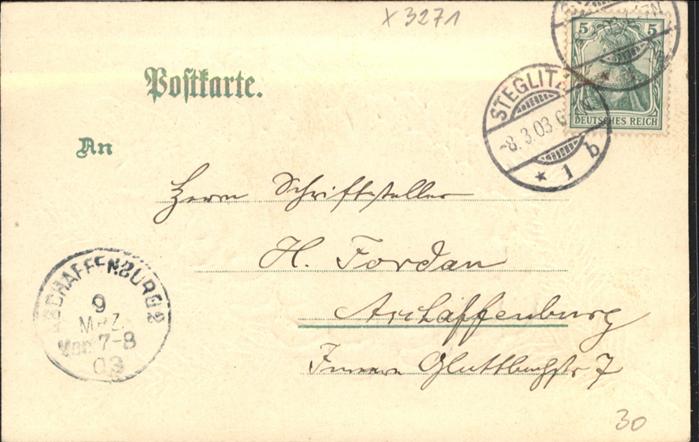 x 3271
5 5
DEUTSCHES REICH
STEGLITZ
-8.3.03
* 1 b
Postkarte.
An
Herrn Schriftsteller
H. Jordan
Aschaffenburg
7
ASCHAFFENBURG 2
9
MRZ.
Vor 7-8
03
30